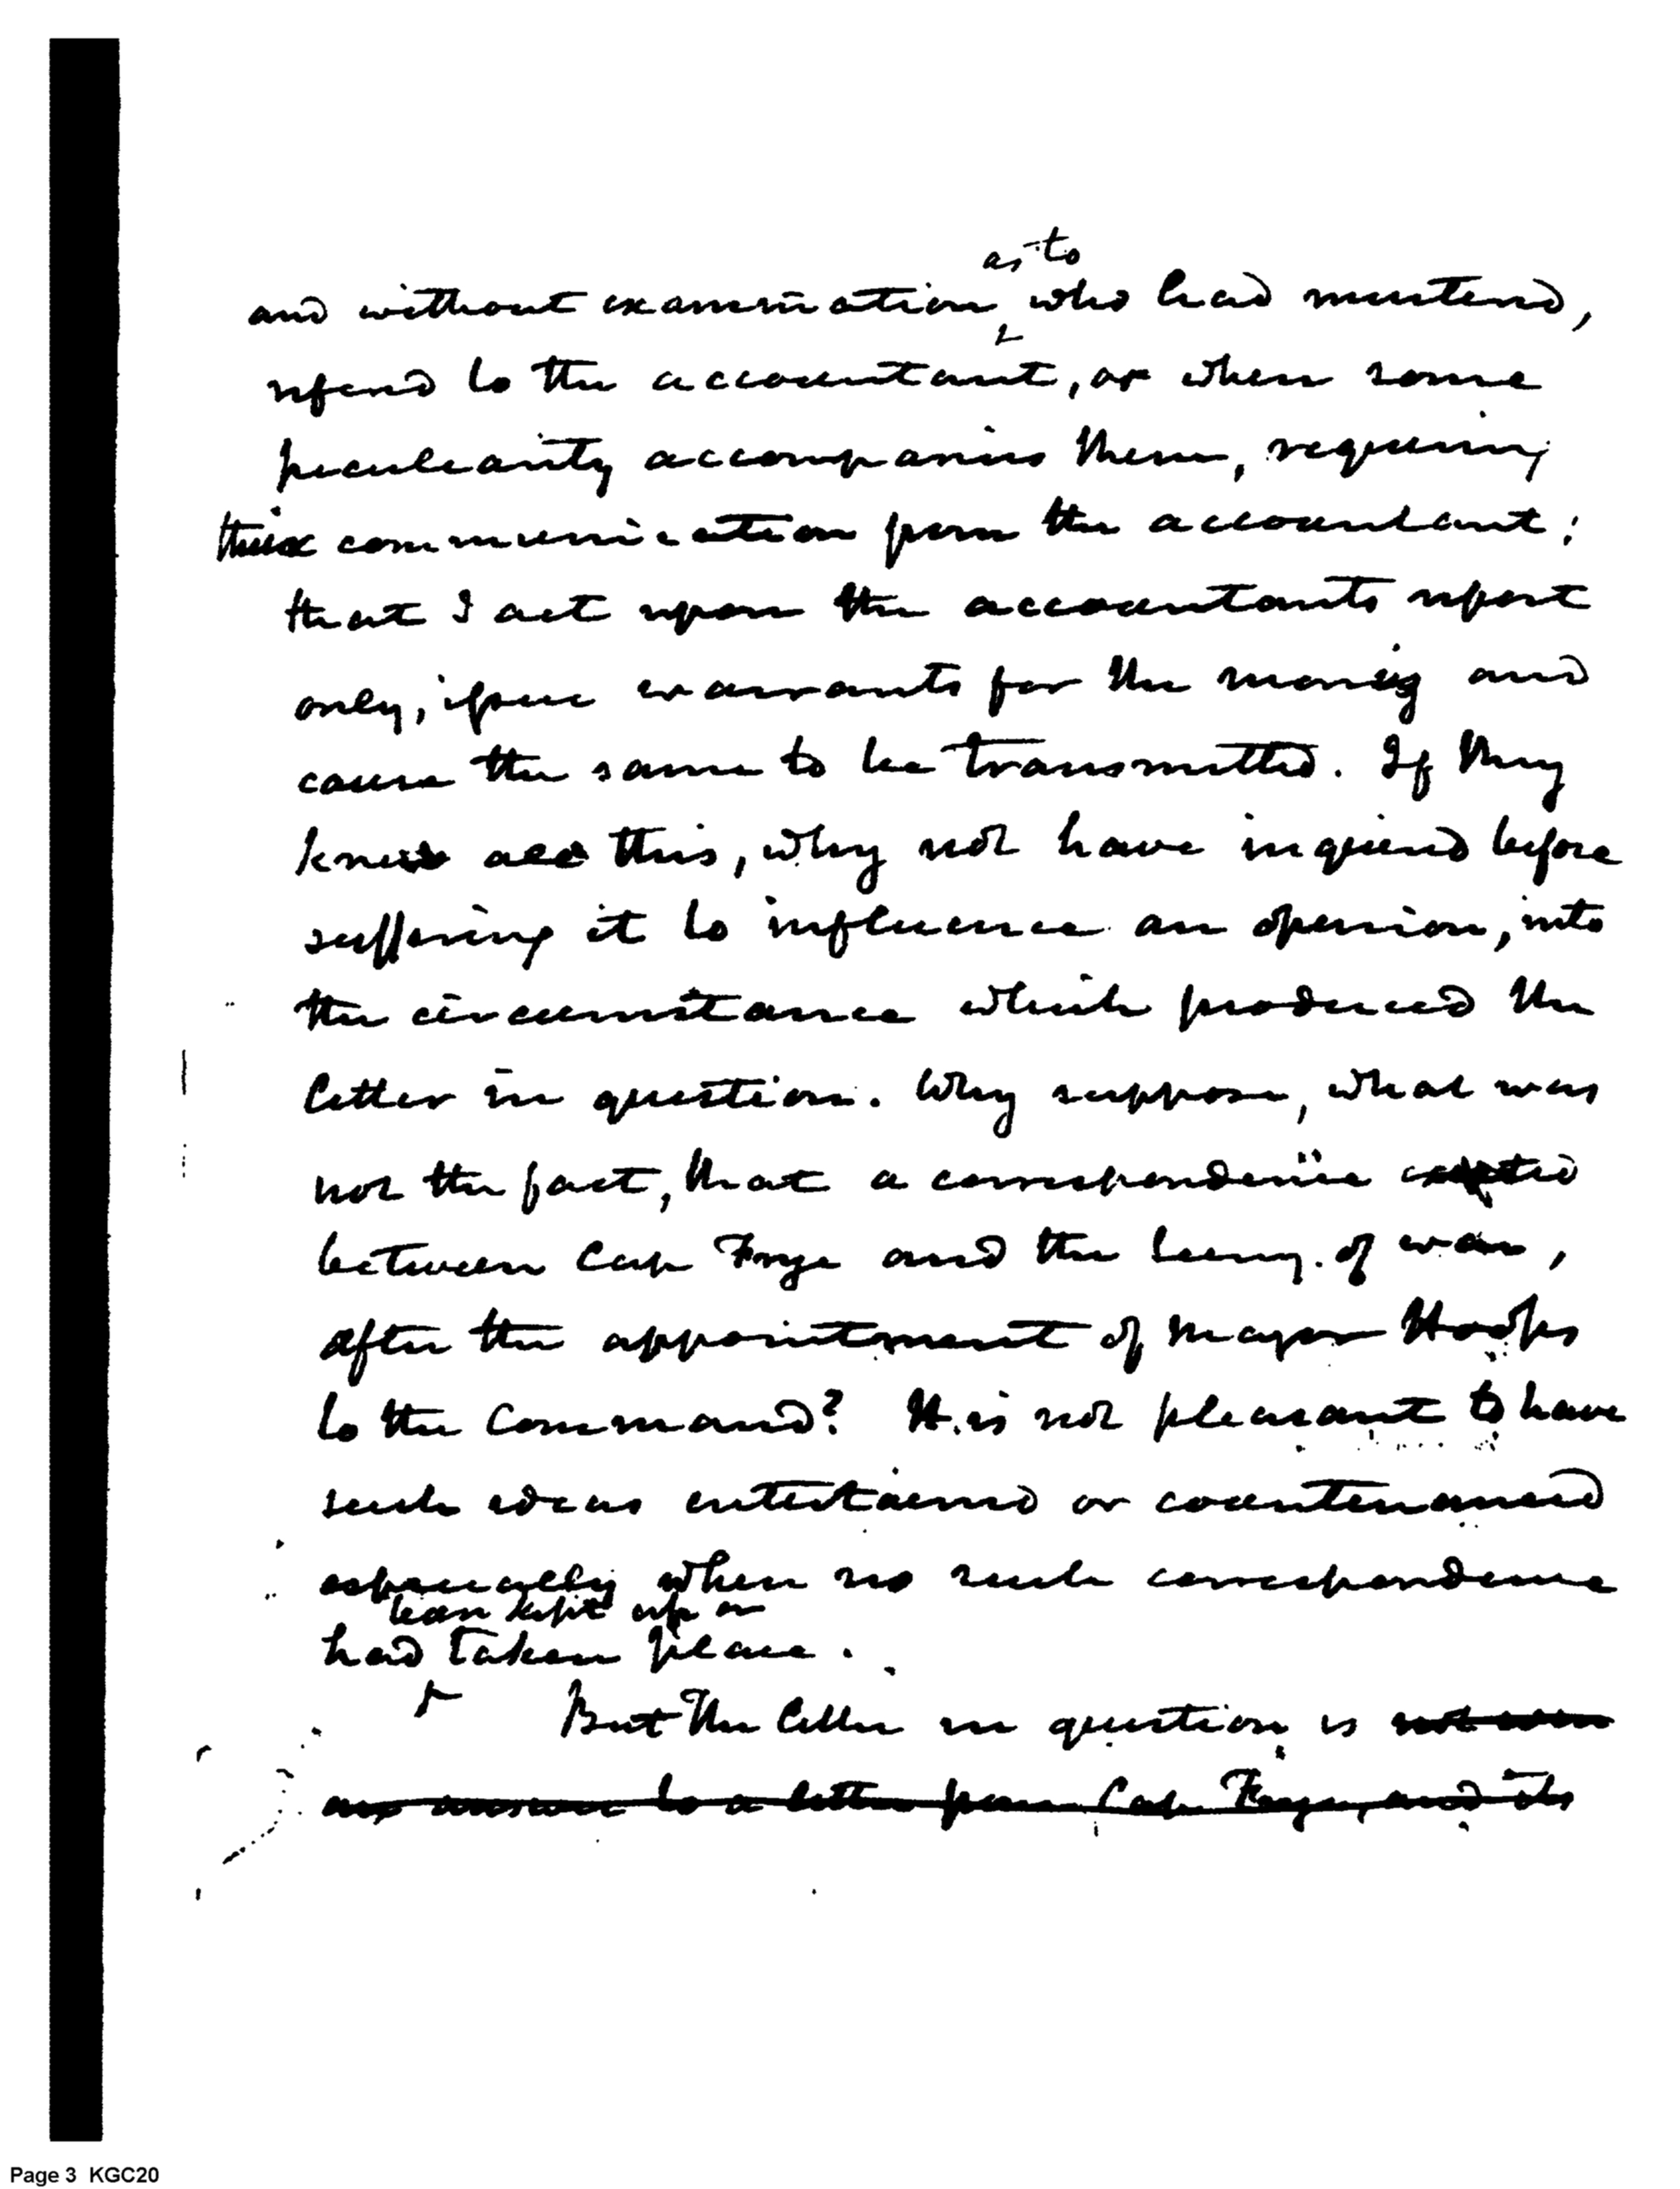 as to
and without examination who had mustered,
refered to the accountant, or when some
peculiarity accompanies them, requiring
communication from the accountant;
that I act upon the accountants report
only, issue warrants for the money and
cause the same to be transmitted. If they
knew all this, why not have inquired before
suffering it to influence an opinion, into
the circumstance which produced the
letter in question. Why suppose, what was
not the fact, that a correspondence existed
between Cap Frye and the Secry. of war,
after the appointment of Major Hoops
to the command? It is not pleasant to have
such ideas entertained or countenanced
especially when no such correspondence
been kept up or
had taken place.
But the letter in question is not even
an answer to a letter from Cap Frye, and its
Page 3 KGC20